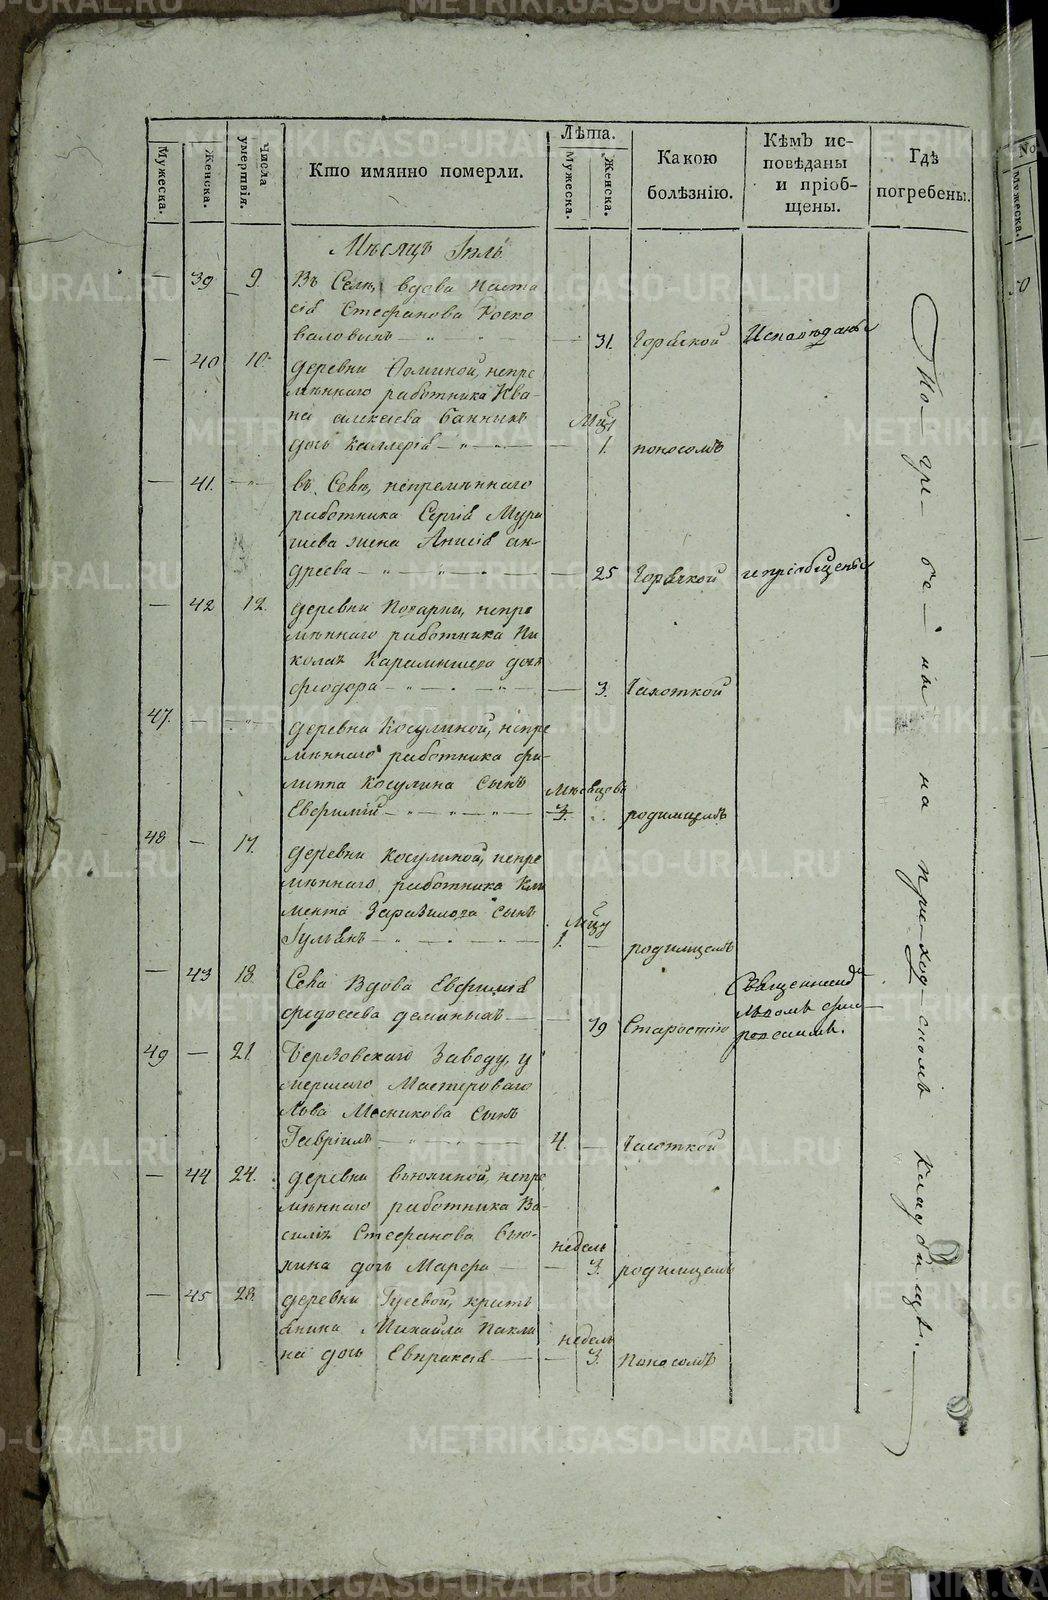 Мужеска.
Женска.
Числа умертвія.
Кто имянно померли.
Лѣта.
Мужеска.
Женска.
Какою болѣзнію.
Кѣмъ исповѣданы и пріобщены.
Гдѣ погребены.
Мѣсяцъ Іюль
— 39 9. Въ Селѣ, вдова Наста
сія Стефанова
— 31. Горячкой Исповѣдана
— 40 10. деревни Фоминой, непре
мѣннаго работника Ива
на Алексѣева Банныхъ Мцъ
дочь Каллерія — 1. поносомъ
— 41. — въ Селѣ, непремѣннаго
работника Сергія Мура
шева жена Анисія Ан-
дреева — 25 Горячкой непріобщена
— 42 12. деревни непре
мѣннаго работника Ни
колая дочь
Феодора — 3. Чахоткой
47. — — деревни Косулиной, непре
мѣннаго работника Фи-
липпа Косулина сынъ Мѣсяцовъ
Евфимій — 3. родимцемъ
48 — 17. деревни Косулиной, непре
мѣннаго работника Кли
мента сынъ Мцъ
Іуліанъ — 1. — родимцемъ
— 43 18. Села Вдова Евфимія Священникомъ
Федосѣева Деминыхъ — 79 Старостію
49 — 21. Березовскаго Заводу, у
мершаго Мастероваго
Льва Мясникова сынъ
Гавріилъ — 4. Чахоткой
— 44 24. деревни Вьюхиной, непре
мѣннаго работника Ва-
силія Стефанова Вью- недель
хина дочь Марфа — 3. родимцемъ
— 45 28. деревни Гусевой, кресть
янина Михаила Пакли недель
на дочь Евпраксія — 3. Поносомъ
По-гре-бе-ны на при-ход-скомъ Кладбищѣ.
№
Мужеска.
50
METRIKI.GASO-URAL.RU